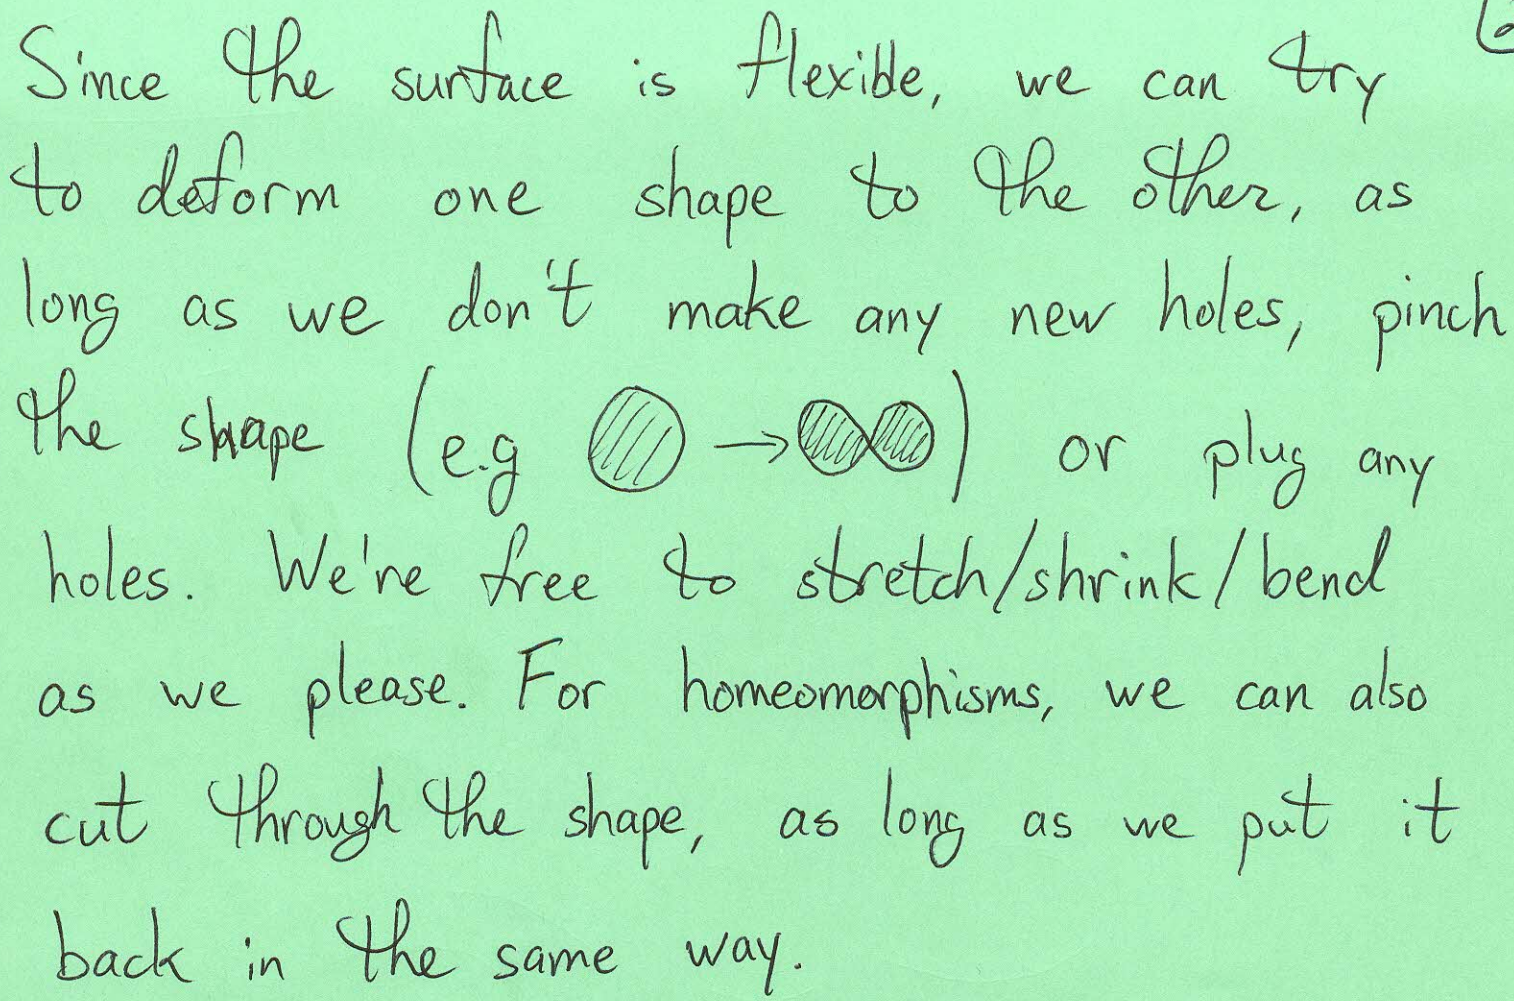 Since the surface is flexible, we can try
to deform one shape to the other, as
long as we don't make any new holes, pinch
the shape (e.g → ) or plug any
holes. We're free to stretch/shrink/bend
as we please. For homeomorphisms, we can also
cut through the shape, as long as we put it
back in the same way.